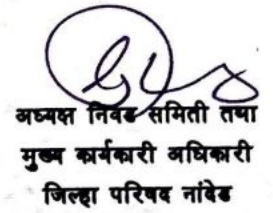 अध्यक्ष निवड समिती तथा
मुख्य कार्यकारी अधिकारी
जिल्हा परिषद नांदेड